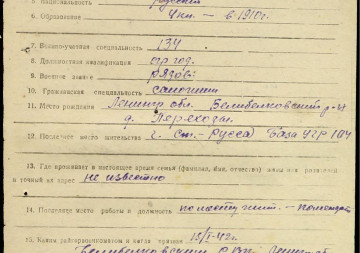 5. Национальность русский
6. Образование 4 кл. — в 1910 г.
7. Военно-учетная специальность 134
8. Должностная квалификация
9. Военное звание рядов.
10. Гражданская специальность сапожник
11. Место рождения Ленингр. обл. Белебелковский р-н
д.
12. Последнее место жительства г. Ст.-Русса База
13. Где проживает в настоящее время семья (фамилия, имя, отчество) жены или родителей
и точный их адрес не известно
14. Последнее место работы и должность
15. Каким райвоенкоматом и когда призван 18/I-42 г.
Белебелковским РВК